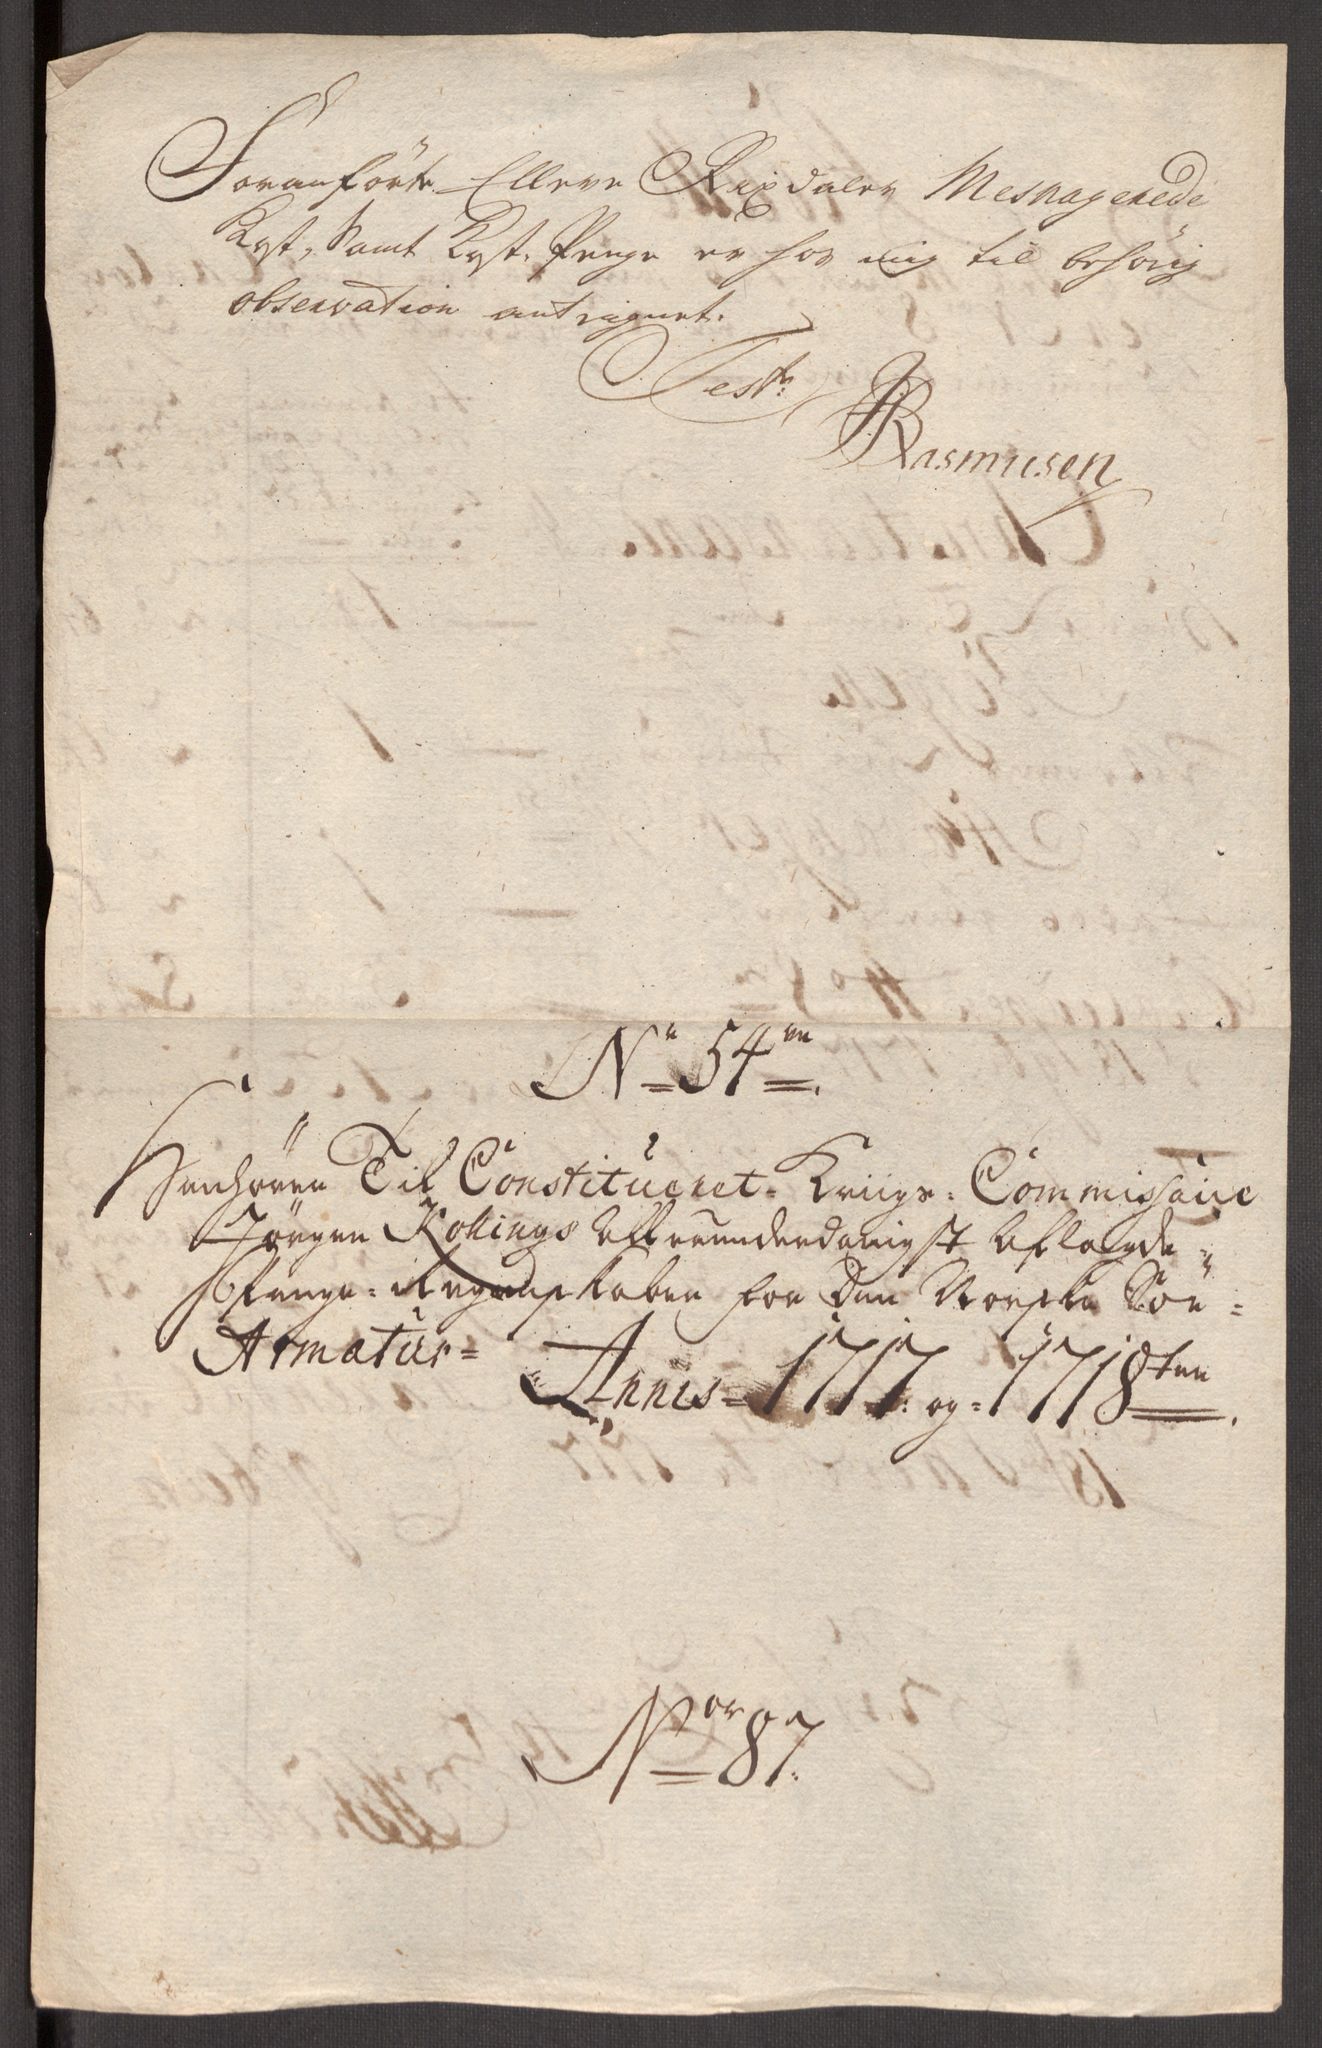 Foranförte Elleve Rixdaler Mesnagerede
Kost, Samt Kost-Penge er hos mig til behörig
observation antegnet.
Test:
Rasmusen
No 54
Henhörer Til Constitueret Kriigs-Commissaire
Jörgen Kollings allerunderdanigst aflagde
Penge-Regenskaber for Den Norske Söe-
Armatur-
Annis 1717: og 1718ten
No 87.